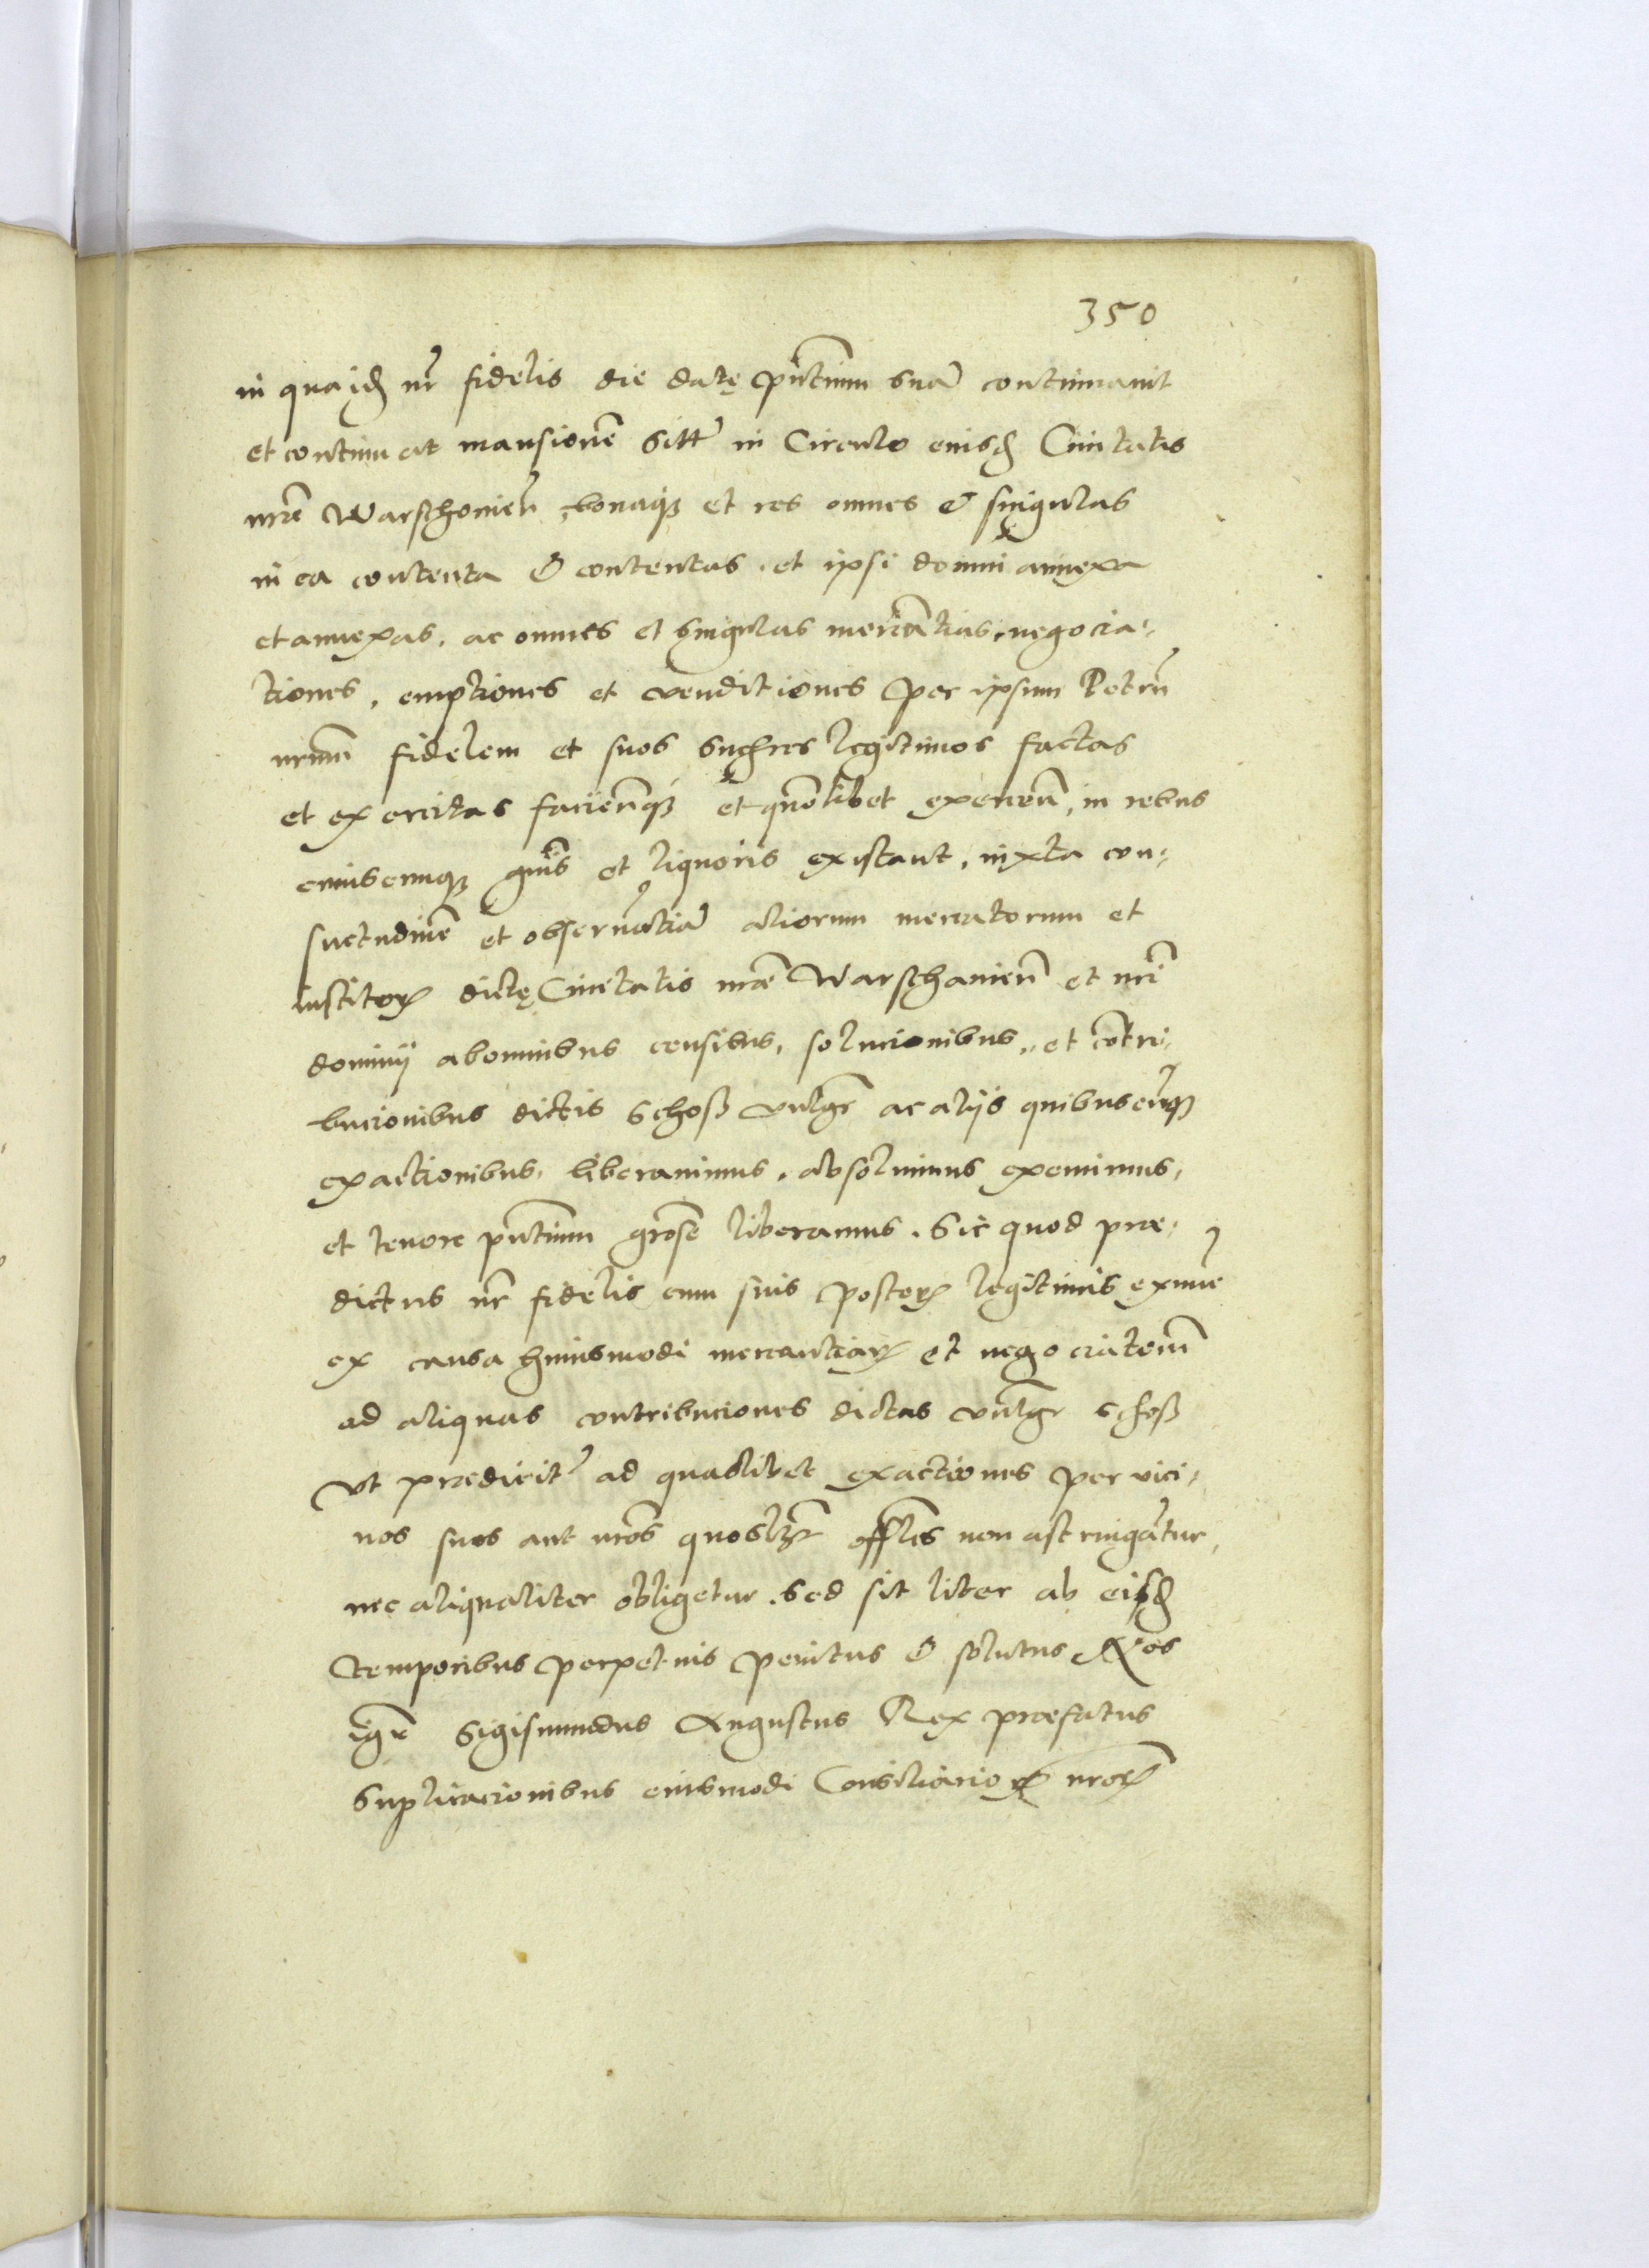 350
in qua id nr̄ fidelis die datę pn̄tium suā continuavit
et continuat mansionē sitt̄ in Circulo eiusd Civitatis
nrē Warschovien̄, bonaq3 et res omnes & singulas
in ea contenta & contentas. et ipsi domui annexa
et annexas. ac omnes et singulas mercātias, negocia-
tiones, emptiones et venditiones per ipsum Petrū
nrum̄ fidelem et suos legitimos factas
et exercitas faciēn̄q3 et quōlibet exercen̄, in rebus
cuiuscunq3 gn̄is et liquoris existant, iuxta con-
suetudinē et observātiā aliorum mercatorum et
institorꝝ dictę Civitatis nræ Warschavien̄ et nrī
dominij ab omnibus censibus, solucionibus, et cōtri-
bucionibus dictis Schoß vulgr̄ ac alijs quibuscūq3
exactionibus, liberavimus, absolvimus exemimus,
et tenore pn̄tium grōse liberamus. Sic quod præ-
dictus nr̄ fidelis cum suis posterꝝ legitimis exnunc̄
ex causa huiusmodi mercantiarꝝ et negociatem̄
ad aliquas contribuciones dictas vulgr̄ schoß
Ut prædicit̄ ad quaslibet exactiones per vici-
nos suos aut nrōs quoslz̄ offlēs non astringātur,
nec aliqualiter obligetur. Sed sit liber ab eisd
temporibus perpetuis penitus & solutus Nos
igr̄ Sigismundus Augustus Rex præfatus
Suplicacionibus eiusmodi Consiliariorꝝ nrorꝝ